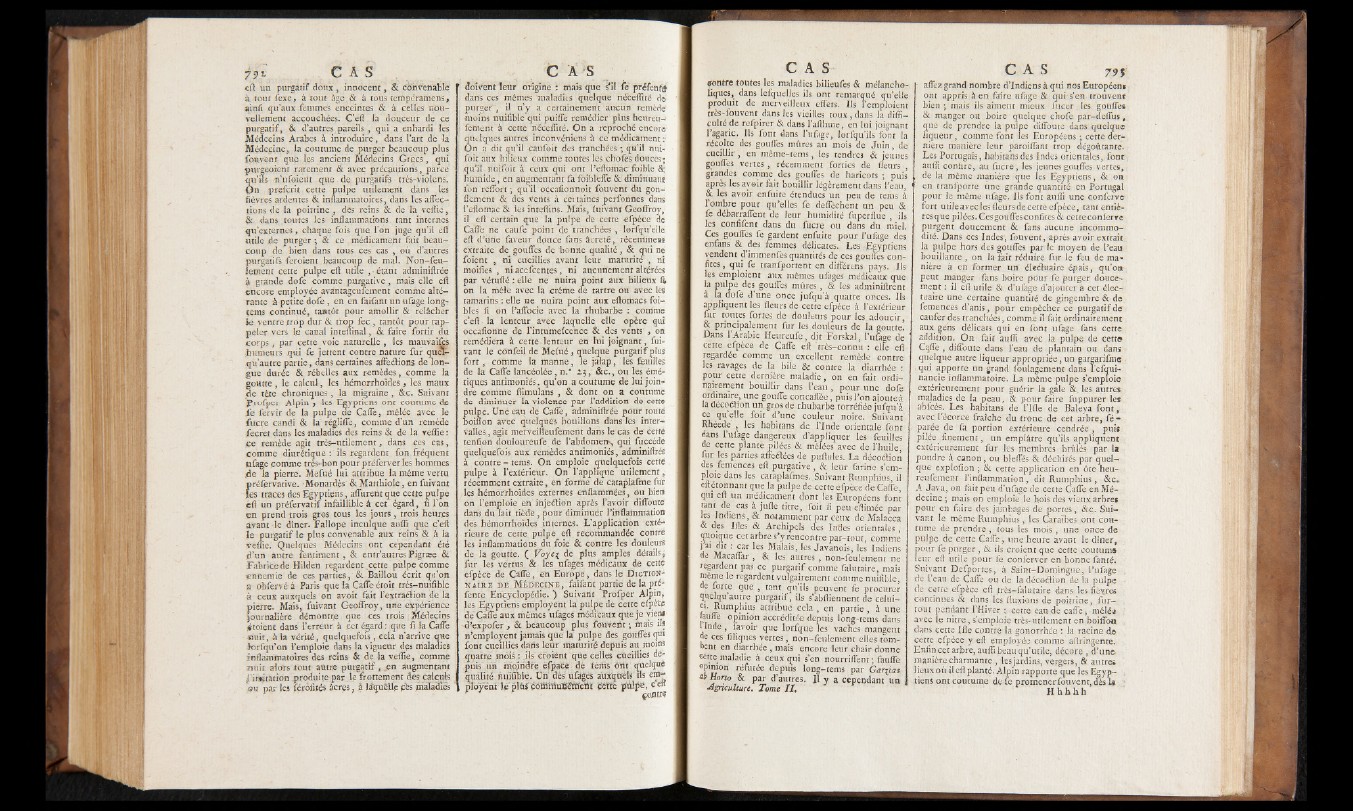 792 C A S
est un purgatif doux, innocent, & convenable
à tout sexe, à tout âge & à tous tempéramens,
ainsi qu'aux femmes enceintes & à celles nou-
vellement accouchées. C'est la douceur de ce
purgatif, & d'autres pareils, qui a enhardi les
Médecins Arabes à introduire, dans l'art de la
Médecine, la coutume de purger beaucoup plus
souvent que les anciens Médecins Grecs, qui
purgeoient rarement & avec précautions, parce
qu'ils n'usoient que de purgatifs très-violens.
On prescrit cette pulpe utilement dans les
fièvres ardentes & inflammatoires, dans les affec-
tions de la poitrine, des reins & de la vessie,
& dans toutes les inflammations tant internes
qu'externes, chaque fois que l'on juge qu'il est
utile de purger; & ce médicament fait beau-
coup de bien dans tous ces cas, ou d'autres
purgatifs feroient beaucoup de mal. Non-seu-
lement cette pulpe est utile, étant administrée
à grande dose comme purgative, mais elle est
encore employée avantageusement comme alté-
rante à petite dose, en en faisant un usage long-
tems continué, tantôt pour amollir & relâcher
le ventre trop dur & trop sec, tantôt pour rap-
peler vers le canal intestinal, & faire sortir du
corps, par cette voie naturelle, les mauvaises
humeurs qui se jettent contre nature sur quel-
qu'autre partie, dans certaines affections de lon-
gue durée & rébelles aux remèdes, comme la
goutte, le calcul, les hémorrhoïdes, les maux
de tête chroniques, la migraine, &c. Suivant
Prosper Alpin, les Egyptiens ont coutume de
se servir de la pulpe de Casse, mêlée avec le
sucre candi & la réglisse, comme d'un remède
secret dans les maladies des reins & de la vessie:
ce remède agit très-utilement, dans ces cas,
comme diurétique: ils regardent son fréquent
usage comme très-bon pour préserver les hommes
de la pierre. Mesué lui attribue la même vertu
préservative. Monardès & Matthiole, en suivant
les traces des Egyptiens, assurent que cette pulpe
est un préservatif infaillible à cet égard, si l'on
en prend trois gros tous les jours, trois heures
avant le dîner. Fallope inculque aussi que c'est
le purgatif le plus convenable aux reins & à la
vessie. Quelques Médecins ont cependant été
d'un autre sentiment, & entr'autres Pigræe &
Fabrice de Hilden regardent cette pulpe comme
ennemie de ces parties, & Baillou écrit qu'on
a observé à Paris que la Casse étoit très-nuisible
à ceux auxquels on avoit fait l'extraction de la
pierre. Mais, suivant Geoffroy, une expérience
journalière démontre que ces trois Médecins
étoient dans l'erreur à cet égard: que si la Casse
nuit, à la vérité, quelquefois, cela n'arrive que
lorsqu'on l'emploie dans la vigueur des maladies
inflammatoires des reins & de la vessie, comme
nuit alors tout autre purgatif, en augmentant
l'irritation produite par le frottement des calculs
ou par les sérosités âcres, à laquelle ces maladies
C A S
doivent leur origine: mais que s'il se présente
dans ces mêmes maladies quelque nécessité de
purger, il n'y a certainement aucun remède
moins nuisible qui puisse remédier plus heureu-
sement à cette nécessité. On a reproché encore
quelques autres inconvéniens à ce médicament:
On a dit qu'il causoit des tranchées; qu'il nui-
soit aux bilieux comme toutes les choses douces;
qu'il nuisoit à ceux qui ont l'estomac foible &
humide, en augmentant sa foiblesse & diminuant
son ressort; qu'il occasionnoit souvent du gon-
flement & des vents à certaines personnes dans
l'estomac & les intestins. Mais, suivant Geoffroy,
il est certain que la pulpe de cette espèce de
Casse ne cause point de tranchées, lorsqu'elle
est d'une saveur douce sans âcreté, récemment
extraite de gousses de bonne qualité, & qui ne
soient, ni cueillies avant leur maturité, ni
moisies, ni acescentes, ni aucunement altérées
par vétusté: elle ne nuira point aux bilieux si
on la mêle avec la crème de tartre ou avec les
tamarins: elle ne nuira point aux estomacs foi-
bles si on l'associe avec la rhubarbe: comme
c'est la lenteur avec laquelle elle opère qui
occasionne de l'intumescence & des vents, on
remédiera à cette lenteur en lui joignant, sui-
vant le conseil de Mesué, quelque purgatif plus
fort, comme la manne, le jalap, les feuilles
de la Casse lancéolée, n.° 23, &c., ou les émé-
tiques antimoniés, qu'on a coutume de lui join-
dre comme stimulans, & dont on a coutume
de diminuer la violence par l'addition de cette
pulpe. Une eau de Casse, administrée pour toute
boisson avec quelques bouillons dans les inter-
valles, agit merveilleusement dans le cas de cette
tension douloureuse de l'abdomen, qui succède
quelquefois aux remèdes antimoniés, administrés
à contre-tems. On emploie quelquefois cette
pulpe à l'extérieur. On l'applique utilement,
récemment extraite, en forme de cataplasme sur
les hémorrhoïdes externes enflammées, ou bien
on l'emploie en injection après l'avoir dissoute
dans du lait tiède, pour diminuer l'inflammation
des hémorrhoïdes internes. L'application exté-
rieure de cette pulpe est recommandée contre
les inflammations du foie & contre les douleurs
de la goutte. (Voyez de plus amples détails,
sur les vertus & les usages médicaux de cette
espèce de Casse, en Europe, dans le DICTION-
NAIRE DE MÉDECINE, faisant partie de la pré-
sente Encyclopédie.) Suivant Prosper Alpin,
les Egyptiens employent la pulpe de cette espèce
de Casse aux mêmes usages médicaux que je viens
d'exposer, & beaucoup plus souvent; mais ils
n'employent jamais que la pulpe des gousses qui
sont cueillies dans leur maturité depuis au moins
quatre mois: ils croient que celles cueillies de-
puis un moindre espace de tems ont quelque
qualité nuisible. Un des usages auxquels ils em-
ployent le plus communément cette pulpe, c'est
contre
C A S
contre toutes les maladies bilieuses & mélancho-
liques, dans lesquelles ils ont remarqué qu'elle
produit de merveilleux effets. Ils l'emploient
très-souvent dans les vieilles toux, dans la diffi-
culté de respirer & dans l'asthme, en lui joignant
l'agaric. Ils sont dans l'usage, lorsqu'ils font la
récolte des gousses mûres au mois de Juin, de
cueillir, en même-tems, les tendres & jeunes
gousses vertes, récemment sorties de fleurs,
grandes comme des gousses de haricots; puis
après les avoir fait bouillir légèrement dans l'eau,
& les avoir ensuite étendues un peu de tems à
l'ombre pour qu'elles se dessèchent un peu &
se débarrassent de leur humidité superflue, ils
les confisent dans du sucre ou dans du miel.
Ces gousses se gardent ensuite pour l'usage des
enfans & des femmes délicates. Les Egyptiens
vendent d'immenses quantités de ces gousses con-
fites, qui se transportent en différens pays. Ils
les emploient aux mêmes usages médicaux que
la pulpe des gousses mûres, & les administrent
à la dose d'une once jusqu'à quatre onces. Ils
appliquent les fleurs de cette espèce à l'extérieur
sur toutes sortes de douleurs pour les adoucir,
& principalement sur les douleurs de la goutte.
Dans l'Arabie Heureuse, dit Forskal, l'usage de
cette espèce de Casse est très-connu: elle est
regardée comme un excellent remède contre
les ravages de la bile & contre la diarrhée:
pour cette dernière maladie, on en fait ordi-
nairement bouillir dans l'eau, pour une dose
ordinaire, une gousse concassée, puis l'on ajoute à
la décoction un gros de rhubarbe torréfiée jusqu'à
ce qu'elle soit d'une couleur noire. Suivant
Rheede, les habitans de l'Inde orientale sont
dans l'usage dangereux d'appliquer les feuilles
de cette plante pilées & mêlées avec de l'huile,
sur les parties affectées de pustules. La décoction
des semences est purgative, & leur farine s'em-
ploie dans les cataplasmes. Suivant Rumphius, il
est étonnant que la pulpe de cette espèce de Casse,
qui est un médicament dont les Européens font
tant de cas à juste titre, soit si peu estimée par
les Indiens, & notamment par ceux de Malacca
& des Isles & Archipels des Indes orientales,
quoique cet arbre s'y rencontre par-tout, comme
j'ai dit: car les Malais, les Javanois, les Indiens
de Macassar, & les autres, non-seulement ne
regardent pas ce purgatif comme salutaire, mais
même le regardent vulgairement comme nuisible,
de sorte que, tant qu'ils peuvent se procurer
quelqu'autre purgatif, ils s'abstiennent de celui-
ci. Rumphius attribue cela, en partie, à une
fausse opinion accréditée depuis long-tems dans
l'Inde, savoir que lorsque les vaches mangent
de ces siliques vertes, non-seulement elles tom-
bent en diarrhée, mais encore leur chair donne
cette maladie à ceux qui s'en nourrissent; fausse
opinion refutée depuis long-tems par Garzias
ab Horto & par d'autres. Il y a cependant un
Agriculture. Tome II.
C A S 793
assez grand nombre d'Indiens à qui nos Européens
ont appris à en faire usage & qui s'en trouvent
bien; mais ils aiment mieux sucer les gousses
& manger ou boire quelque chose par-dessus,
que de prendre la pulpe dissoute dans quelque
liqueur, comme font les Européens; cette der-
nière manière leur paroissant trop dégoûtante.
Les Portugais, habitans des Indes orientales, font
aussi confire, au sucre, les jeunes gousses vertes,
de la même manière que les Egyptiens, & on
en transporte une grande quantité en Portugal
pour le même usage. Ils font aussi une conserve
fort utile avec les fleurs de cette espèce, tant entiè-
res que pilées. Ces gousses confites & cette conserve
purgent doucement & sans aucune incommo-
dité. Dans ces Indes, souvent, après avoir extrait
la pulpe hors des gousses par le moyen de l'eau
bouillante, on la fait réduire sur le feu de ma-
nière à en former un électuaire épais, qu'on
peut manger sans boire pour se purger douce-
ment: il est utile & d'usage d'ajouter à cet élec-
tuaire une certaine quantité de gingembre & de
semences d'anis, pour empêcher ce purgatif de
causer des tranchées, comme il fait ordinairement
aux gens délicats qui en font usage sans cette
addition. On fait aussi avec la pulpe de cette
Casse, dissoute dans l'eau de plantain ou dans
quelque autre liqueur appropriée, un gargarisme
qui apporte un grand soulagement dans l'esqui-
nancie inflammatoire. La même pulpe s'emploie
extérieurement pour guérir la gale & les autres
maladies de la peau, & pour faire suppurer les
abscès. Les habitans de l'Isle de Baleya font,
avec l'écorce fraîche du tronc de cet arbre, sé-
parée de sa portion extérieure cendrée, puis
pilée finement, un emplâtre qu'ils appliquent
extérieurement sur les membres brûlés par la
poudre à canon, ou blessés & déchirés par quel-
que explosion; & cette application en ôte heu-
reusement l'inflammation, dit Rumphius, &c.
A Java, on fait peu d'usage de cette Casse en Mé-
decine; mais on emploie le bois des vieux arbres
pour en faire des jambages de portes, &c. Sui-
vant le même Rumphius, les Caraïbes ont cou-
tume de prendre, tous les mois, une once de
pulpe de cette Casse, une heure avant le dîner,
pour se purger, & ils croient que cette coutume
leur est utile pour se conserver en bonne santé.
Suivant Desportes, à Saint-Domingue, l'usage
de l'eau de Casse ou de la décoction de la pulpe
de cette espèce est très-salutaire dans les fièvres
continues & dans les fluxions de poitrine, sur-
tout pendant l'Hiver: cette eau de casse, mêlée
avec le nitre, s'emploie très-utilement en boisson
dans cette Isle contre la gonorrhée: la racine de
cette espèce y est employée comme astringente.
Enfin cet arbre, aussi beau qu'utile, décore, d'une
manière charmante, les jardins, vergers, & autres
lieux où il est planté. Alpin rapporte que les Egyp-
tiens ont coutume de se promener souvent, dès la
H h h h h